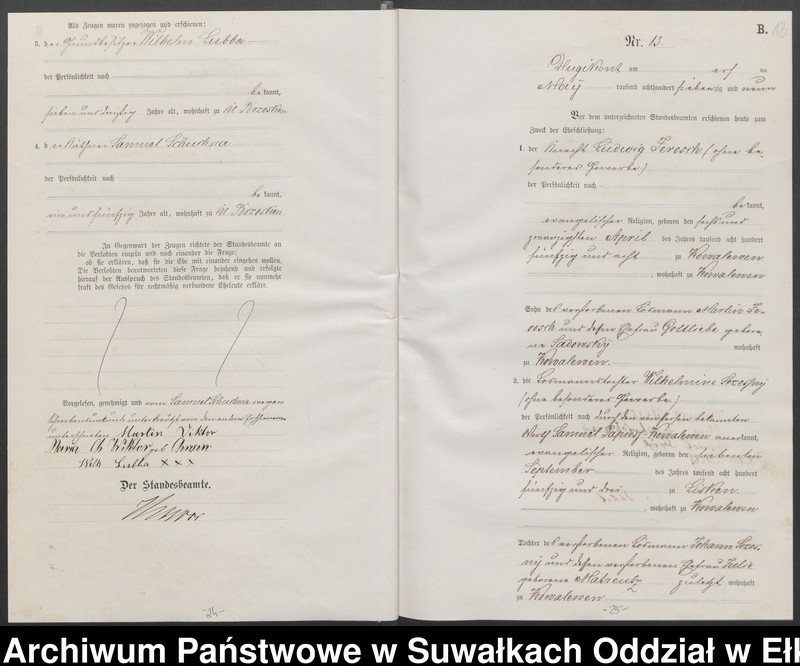 Als Zeugen waren zugezogen und erschienen:
3. der Grundbesitzer Wilhelm Lubba
der Persönlichkeit nach
be kannt,
sieben und dreißig Jahre alt, wohnhaft zu Kl. Brzosken
4. der Käthner Samuel Schuchna
der Persönlichkeit nach
be kannt,
ein und fünfzig Jahre alt, wohnhaft zu Kl. Brzosken
In Gegenwart der Zeugen richtete der Standesbeamte an
die Verlobten einzeln und nach einander die Frage:
ob sie erklären, daß sie die Ehe mit einander eingehen wollen.
Die Verlobten beantworteten diese Frage bejahend und erfolgte
hierauf der Ausspruch des Standesbeamten, daß er sie nunmehr
kraft des Gesetzes für rechtmäßig verbundene Eheleute erkläre.
Vorgelesen, genehmigt und vom Samuel Schuchna wegen
Schreibensunkunde unterkreuzt von den andern
unterschrieben Martin Viktor
Viktor geb
Wilh Lubba XXX
Der Standesbeamte.
-24-
B. 13
Nr. 13.
am erst en
May tausend achthundert siebenzig und neun
Vor dem unterzeichneten Standesbeamten erschienen heute zum
Zweck der Eheschließung:
1. der Knecht Ludwig Jerosch (ohne be-
sonderes Gewerbe)
der Persönlichkeit nach
be kannt,
evangelischer Religion, geboren den sechs und
zwanzigsten April des Jahres tausend acht hundert
fünfzig und acht zu Kowalewen
, wohnhaft zu Kowalewen
Sohn des verstorbenen Losmann Martin Je-
rosch und dessen Ehefrau Gottliebe gebore-
ne Sadowsky wohnhaft
zu Kowalewen.
2. die Losmannstochter Wilhelmine
(ohne besonderes Gewerbe)
der Persönlichkeit nach durch den von Person bekannten
Wirth Samuel Kowalewen anerkannt,
evangelischer Religion, geboren den siebenten
September des Jahres tausend acht hundert
fünfzig und drei zu Lisken
, wohnhaft zu Kowalewen
Tochter des verstorbenen Losmann Johann
und dessen verstorbenen Ehefrau
geborene zuletzt wohnhaft
zu Kowalewen
-25-
Archiwum Państwowe w Suwałkach Oddział w Eł